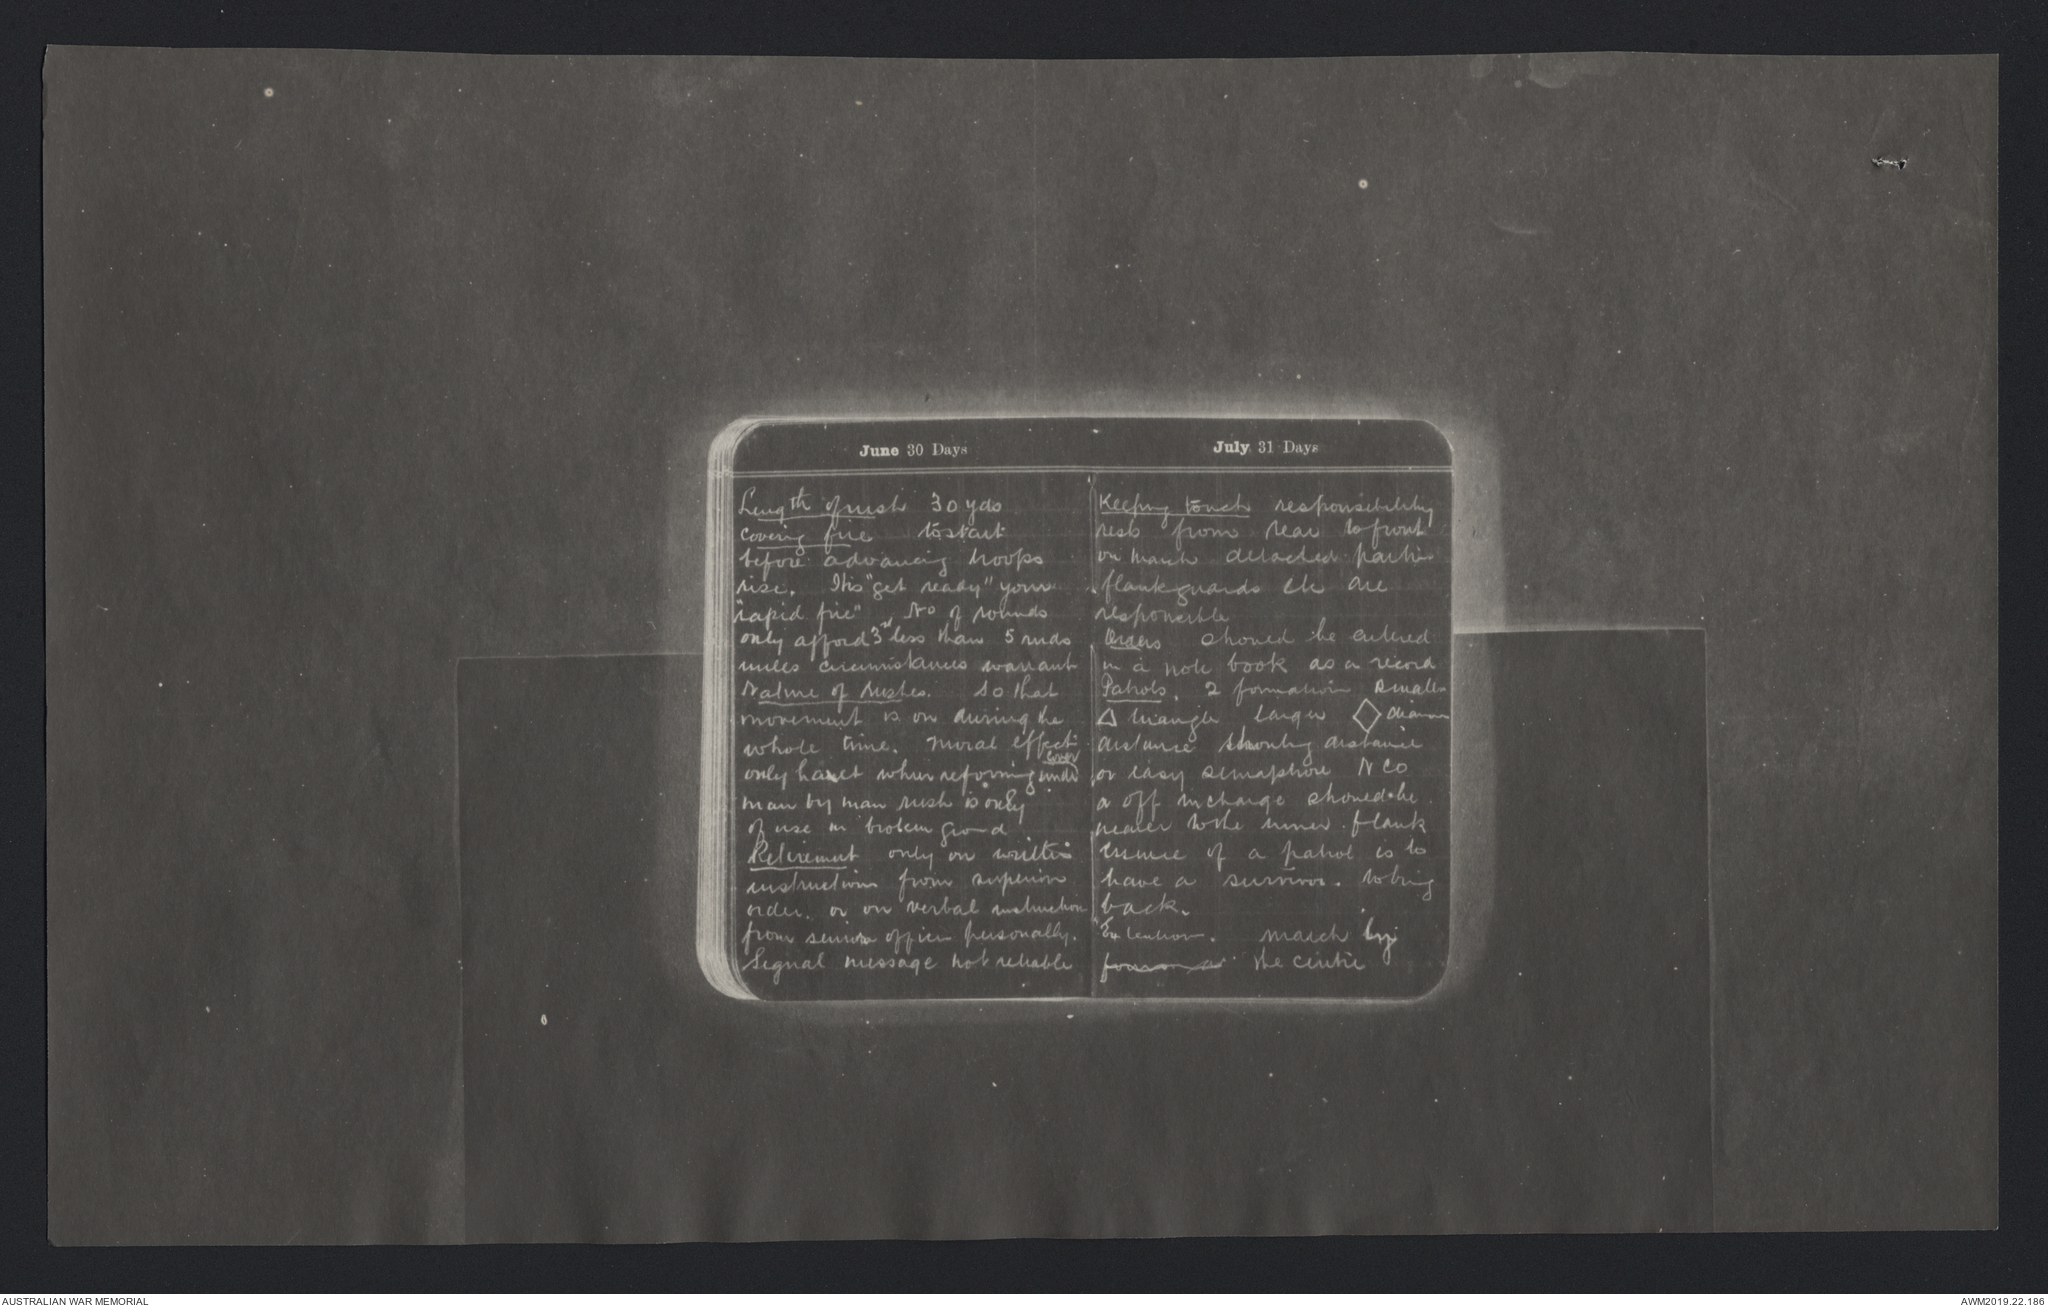 June 30 Days
Length of rush 30 yds
Covering fire to start
before advancing troops
rise. This "get ready" your
"rapid fire" No of rounds
only afford 3rd less than 5 rnds
unless circumstances warrant
Nature of rushes. So that
movement is on during the
whole time. Moral effect
cover
only halt when reforming under
man by man rush is only
of use in broken ground
Retirement only on written
instructions from superior
order. or on verbal instruction
from senior officer personally.
Signal message not reliable
July 31 Days
Keeping touch responsibility
rests from rear to front
on march detached parties
flank guards etc are
responsible
Orders should be entered
in a note book as a record
Patrols. 2 formation smaller
triangle larger
distance shouting distance
or easy semaphore NCO
a off in charge should be
nearer to the inner flank
of a patrol is to
have a survivor. to bring
back.
Extension. march by
the centre
AUSTRALIAN WAR MEMORIAL
AWM2019.22.186